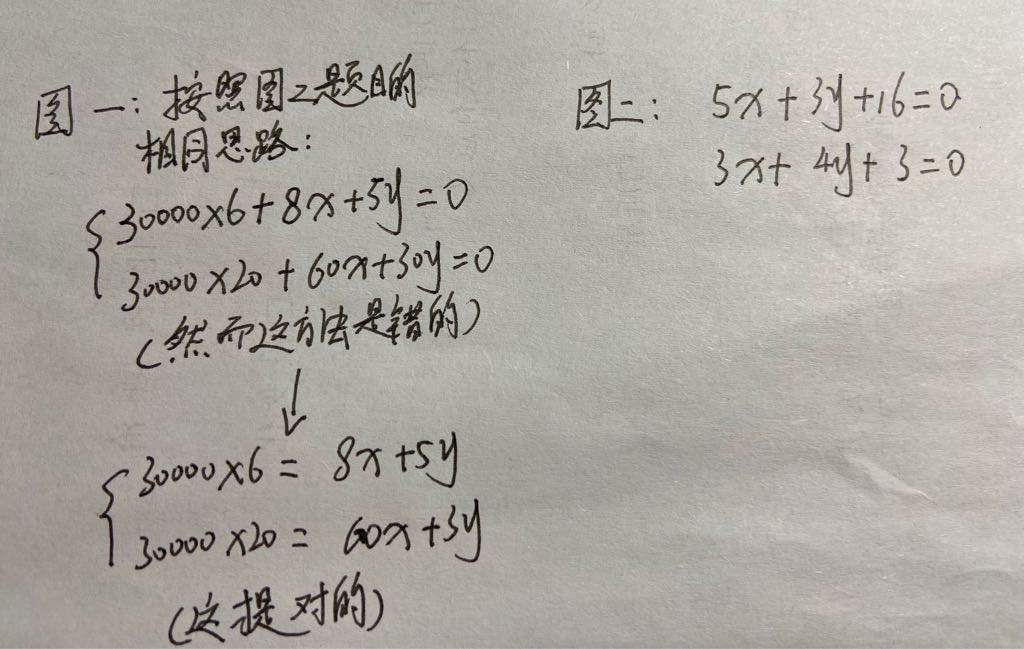 图一：按照图2题目的
相同思路：
30000×6+8x+5y=0
30000×20+60x+30y=0
（然而这方法是错的）
↓
30000×6= 8x+5y
30000×20= 60x+3y
（这提对的）
图二： 5x+3y+16=0
3x+4y+3=0